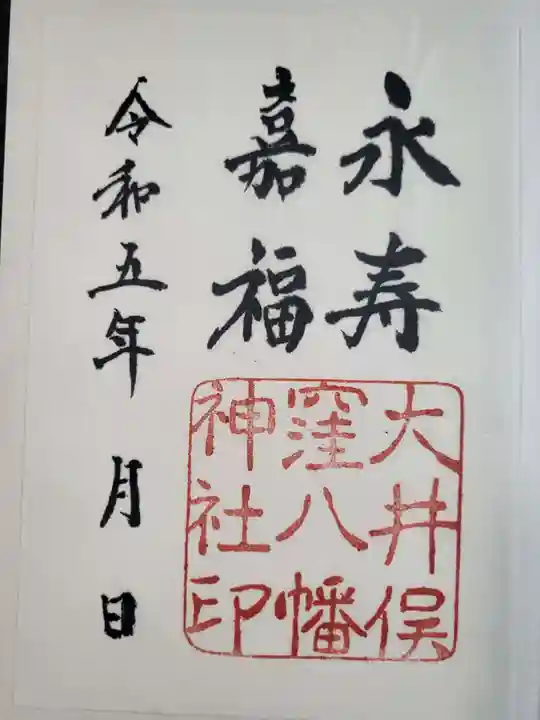 永寿
嘉福
大井俣
窪八幡
神社印
令和五年 月 日